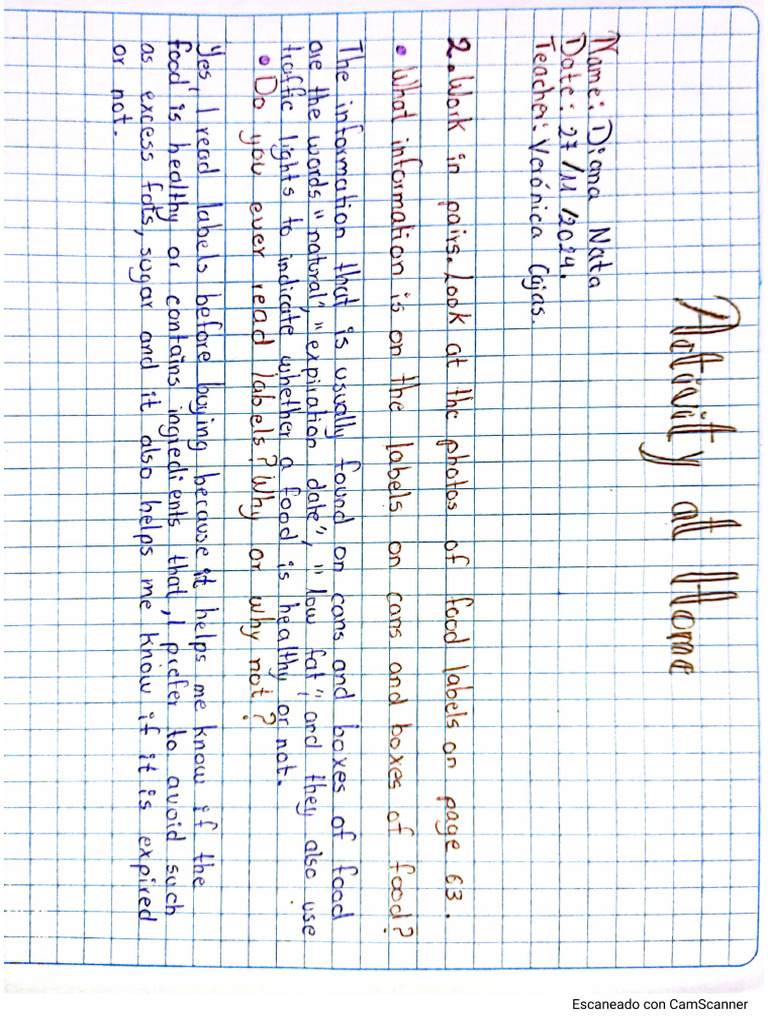 Activity at Home
Name: Diana Nata
Date: 27/11/2024.
Teacher: Verónica Cajas.
2. Work in pairs. Look at the photos of food labels on page 63.
• What information is on the labels on cans and boxes of food?
The information that is usually found on cans and boxes of food
are the words "natural", "expiration date", "low fat", and they also use
traffic lights to indicate whether a food is healthy or not.
• Do you ever read labels? Why or why not?
Yes, I read labels before buying because it helps me know if the
food is healthy or contains ingredients that, I prefer to avoid such
as excess fats, sugar and it also helps me know if it is expired
or not.
Escaneado con CamScanner